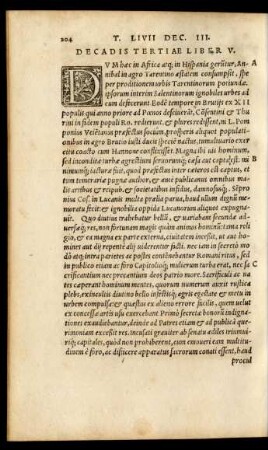 204 T. LIVII DEC. III.
DECADIS TERTIAE LIBER V.
DVM hæc in Africa atq; in Hispania gerūtur, An-
nibal in agro Tarentino æstatem consumpsit, spe
per proditionem urbis Tarentinorum potiundæ.
ipsorum interim Salentinorum ignobiles urbes ad
eum defecerunt. Eodē tempore in Brutijs ex XII
populis qui anno priore ad Pœnos desciuerāt, Cōsentani & Thu
rini in fidem populi Ro. redierunt, & plures redissent, ni L. Pom
ponius Veiētanus præfectus sociûm, prosperis aliquot populationi-
bus in agro Brutio iusti ducis speciē nactus, tumultuario exer
citu coacto cum Hannone conflixisset. Magna ibi uis hominum,
sed incondita turbæ agrestium seruorumq́; cæsa aut capta est. mi
nimumq́; iactura fuit, quod præfectus inter cæteros est captus, et
tum temerariæ pugnæ author, & ante publicanus omnibus ma-
lis artibus & reipub. & societatibus infidus, damnosusq́;. Sēpro
nius Cos. in Lucanis multa prælia parua, haud ullum dignū me-
moratu fecit, & ignobilia oppida Lucanorum aliquot expugnauit.
Quo diutius trahebatur bellū, & uariabant secundæ aduer-
sæq́; res, non fortunam magis quàm animos hominū: tanta reli-
gio, & ea magna ex parte externa, ciuitatem incessit, ut aut ho
mines aut dij repente alij uiderentur facti. nec iam in secreto mo
dò atq; intra parietes ac postes contēnebantur Romani ritus, sed
in publico etiam ac foro Capitolioq́; mulierum turba erat, nec sa
crificantium nec precantium deos patrio more. Sacrificuli ac ua
tes ceperant hominum mentes, quorum numerum auxit rustica
plebs, ex incultis diutino bello infestisq́; agris egestate & metu in
urbem compulsa, & quæstus ex alieno errore facilis, quem uelut
ex concessa artis usu exercebant. Primò secretæ bonorū indignatio
nes exaudiebantur, deinde ad Patres etiam & ad publicā que-
rimoniam excessit res. incusati grauiter ab senatu ædiles triumuiriq́;
capitales, quòd non prohiberent, cum emouere eam multitu-
dinem è foro, ac disijcere apparatus sacrorum conati essent, haud
procul
A
C